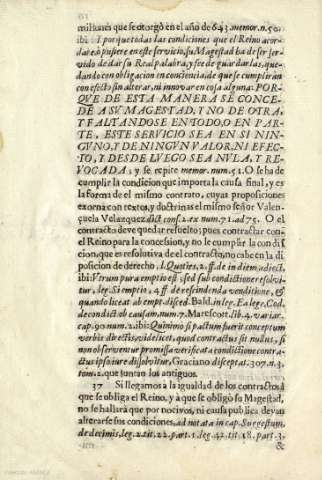 millones que se otorgò en el año de 643. memor. n. 50.
ibi: I porque todas las condiciones que el Reino acor-
dare, o pusiere en este servicio, su Magestad ha de ser ser-
vido de dar su Real palabra, y fee de guardarlas, que-
dando con obligacion en conciencia, de que se cumpliran
con efecto sin alterar, ni innovar en cosa alguna: POR-
QVE DE ESTA MANERA SE CONCE-
DE A SV MAGESTAD, Y NO DE OTRA,
Y FALTANDOSE EN TODO, O EN PAR-
TE, ESTE SERVICIO SEA EN SI NIN-
GVNO, Y DE NINGVN VALOR, NI EFEC-
TO, Y DESDE LVEGO SEA NVLA, Y RE-
VOCADA; y se repite memor. num. 51. O se ha de
cumplir la condicion que importa la causa final, y es
la forma de el mismo contrato, cuyas proposiciones
exorna con textos, y doctrinas el mismo señor Valen-
çuela Velazquez dict. cons. 2. ex num. 71. ad 75. O el
contracto deve quedar resuelto; pues contractar con
el Reino para la concession, y no le cumplir la condi-
cion, que es resolutiva de el contracto, no cabe en la di-
posicion de derecho, l. Quoties, 2. ff. de in diem adiect.
ibi: Verum pura emptio est, sed sub conditione resolvi-
tur, leg. Si emptio, 4. ff. de rescindenda venditione, &
quando liceat ab empt. disced. Bald. in leg. Ea lege, Cod.
de condict. ob causam, num. 7. Marescort. lib. 4. variar.
cap. 90. num. 2. ibi: Quinimo si pactum fuerit conceptum
verbis directis, videlicet, quod contractus sit nullus, si
non observentur promissa verificata conditione contra-
ctus ipso iure dissolvitur, Graciano discept. 307. n. 3.
tom. 2. que juntan los antiguos.
37 Si llegamos a la igualdad de los contractos à
que se obliga el Reino, y à que se obligò su Magestad,
no se hallarà que por nocivos, ni causa publica devan
alterarse sus condiciones, ad notata in cap. Suggestum,
de decimis, leg. 22. tit. 22. part. 1. leg. 42. tit. 18. part. 3.
&